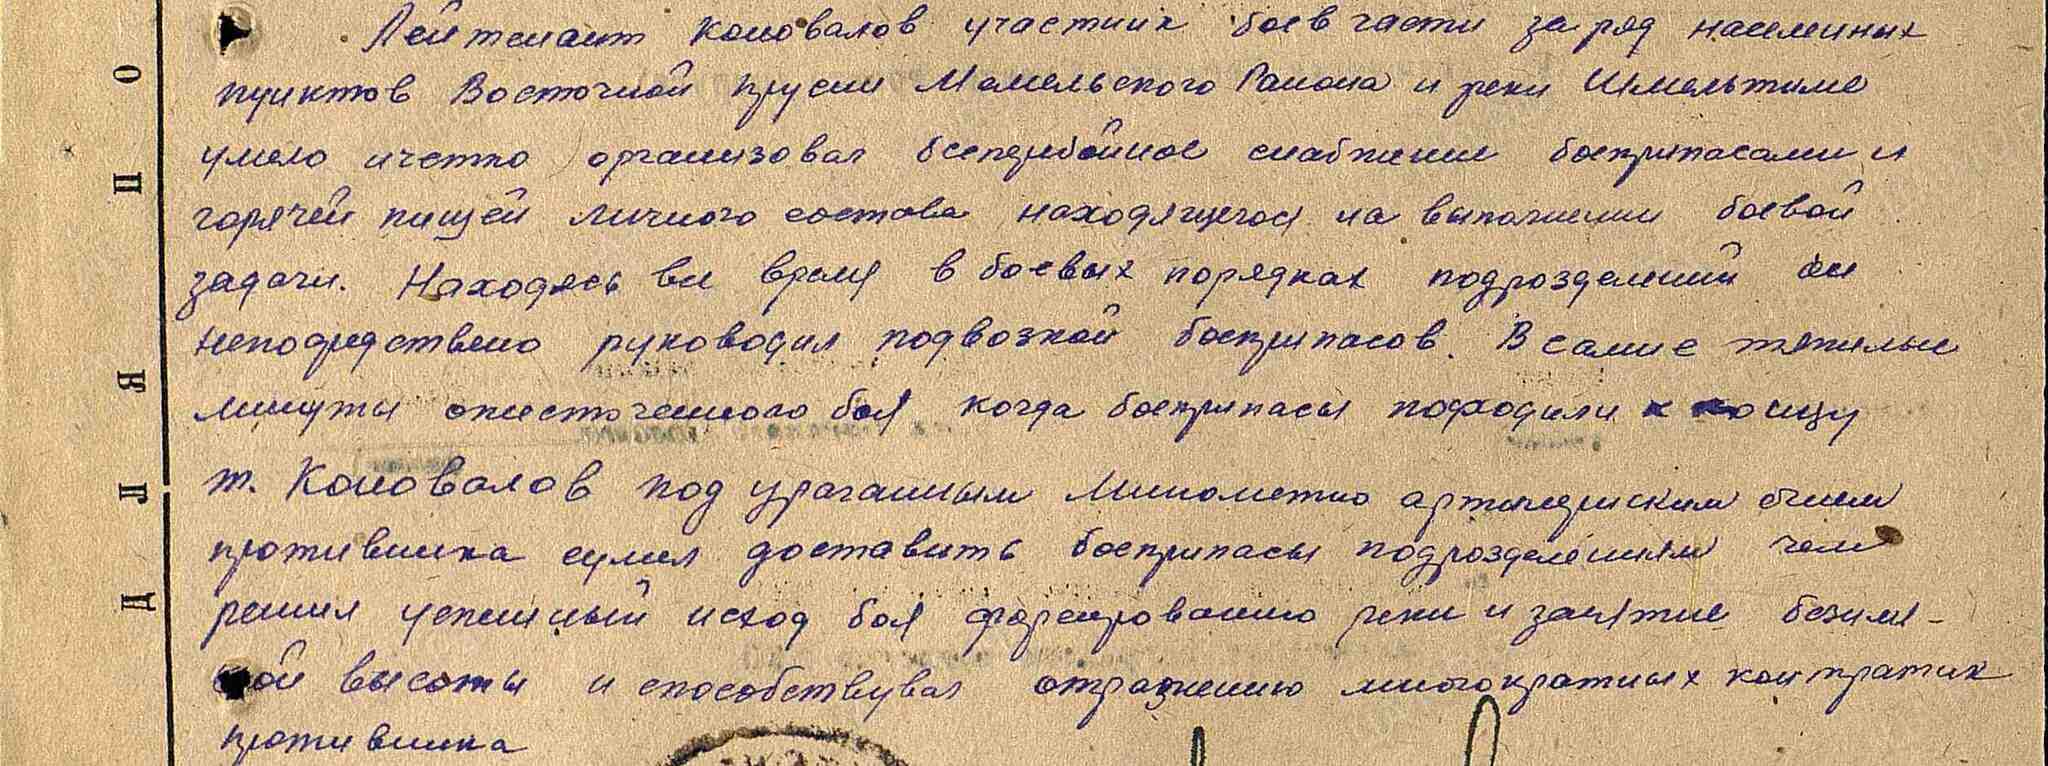 Лейтенант Коновалов участник боев части за ряд населенных
пунктов Восточной Прусии Мемельского Района и реки Шмельтиме
умело и четко организовал бесперебойное снабжение боеприпасами и
горячей пищей личного состава находящегося на выполнении боевой
задачи. Находясь все время в боевых порядках подрозделений он
непосредствено руководил подвозкой боеприпасов. В самие тяжелые
минуты ожесточенного боя когда боеприпасы подходили к концу
т. Коновалов под ураганным минометно артилерийским огнем
противника сумел доставить боеприпасы подрозделениям чем
решил успешный исход боя форсированию реки и занятие безимя-
ной высоты и способствувал отражению многократных контратак
противника
Д Л Я П О